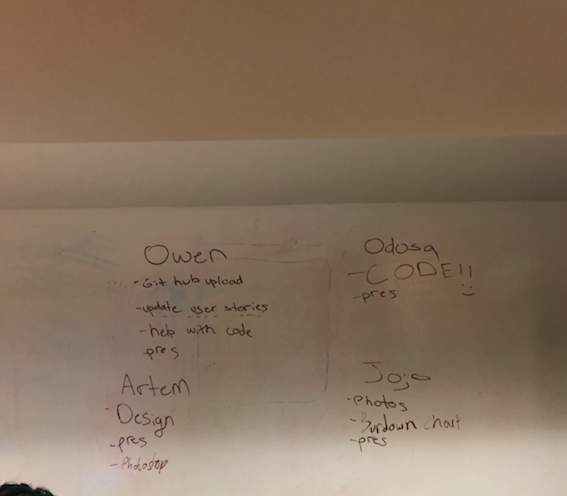 Owen
- Git hub upload
- update user stories
- help with code
- pres
Artem
- Design
- pres
- Photoshop
Odosa
- CODE!!
:)
- pres
Jojo
- photos
- Burdown chart
- pres